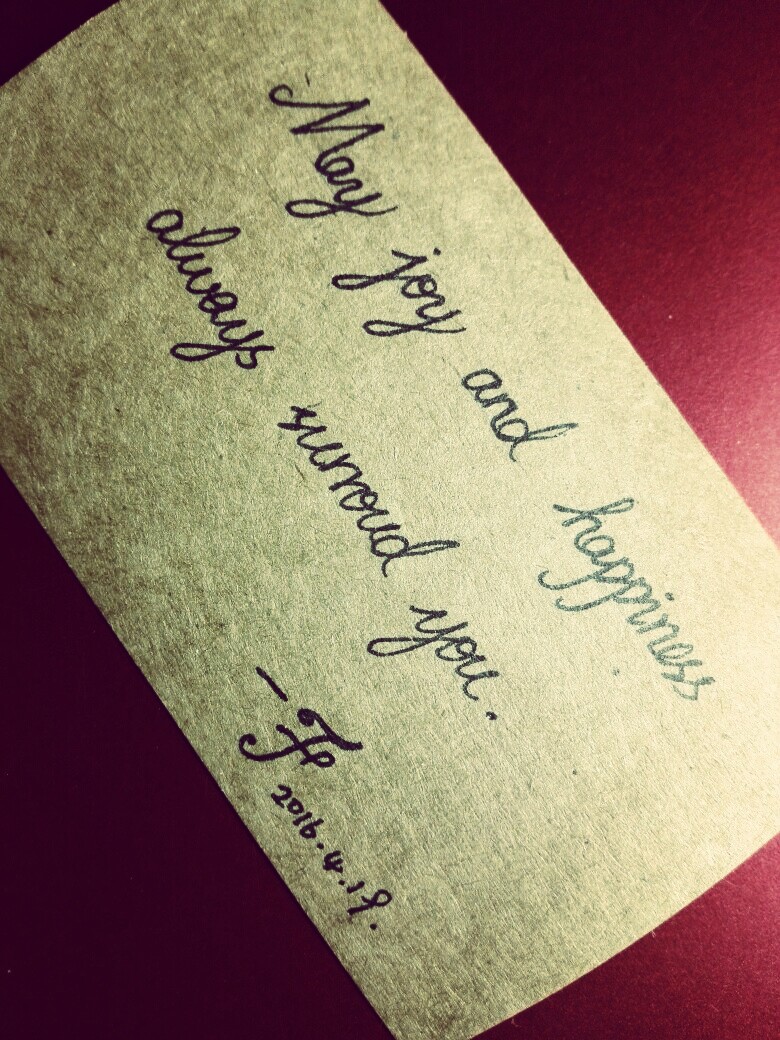 May joy and happiness
always surroud you.
2016.4.18.